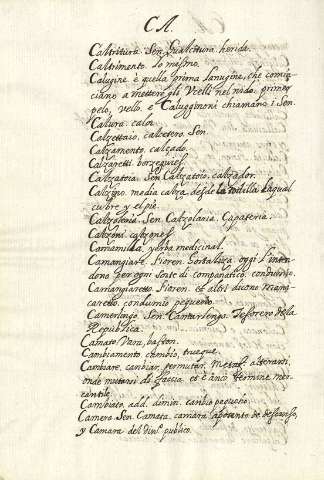 CA.
Caltritura Sen. Scalcitura, herida.
Caltrimento lo mesmo.
Calugine è quella prima lanugine, che comin-
ciano a mettere gli Uccelli nel nido, primo
pelo, vello, e Caluggineni chiamano i Sen.
Callura calor.
Calzettaio, calcetero Sen.
Calzamento, calçado.
Calzaretti borzeguies.
Calzatoia Sen. Calzatoio, calzador.
Calzino media calza, desde la rodilla la qual
cubre y el piè.
Calzoleria Sen. Calzolaria, Capateria.
Calzoni calzones.
Camamilla, yerba medicinal.
Camangiare, Fioren. oggi s'inten-
dono per ogni sorte di companatico, condumio.
Camangiaretto, Fioren. et altri dicono mangi-
caretto, condumio pequeño.
Camerlengo, Sen. Camarlengo, Tesorero de la
Republica.
Camato, Vara, baston.
Cambiamento, cambio, trueque.
Cambiare, cambiar, permutar, Metaf. alterarsi,
onde mutarsi di faccia, et è anco termine mer-
cantile.
Cambiato, add. dimin. cambio pequeño.
Camera Sen. Camara, camara aposento de descanso,
y Camara del publico.